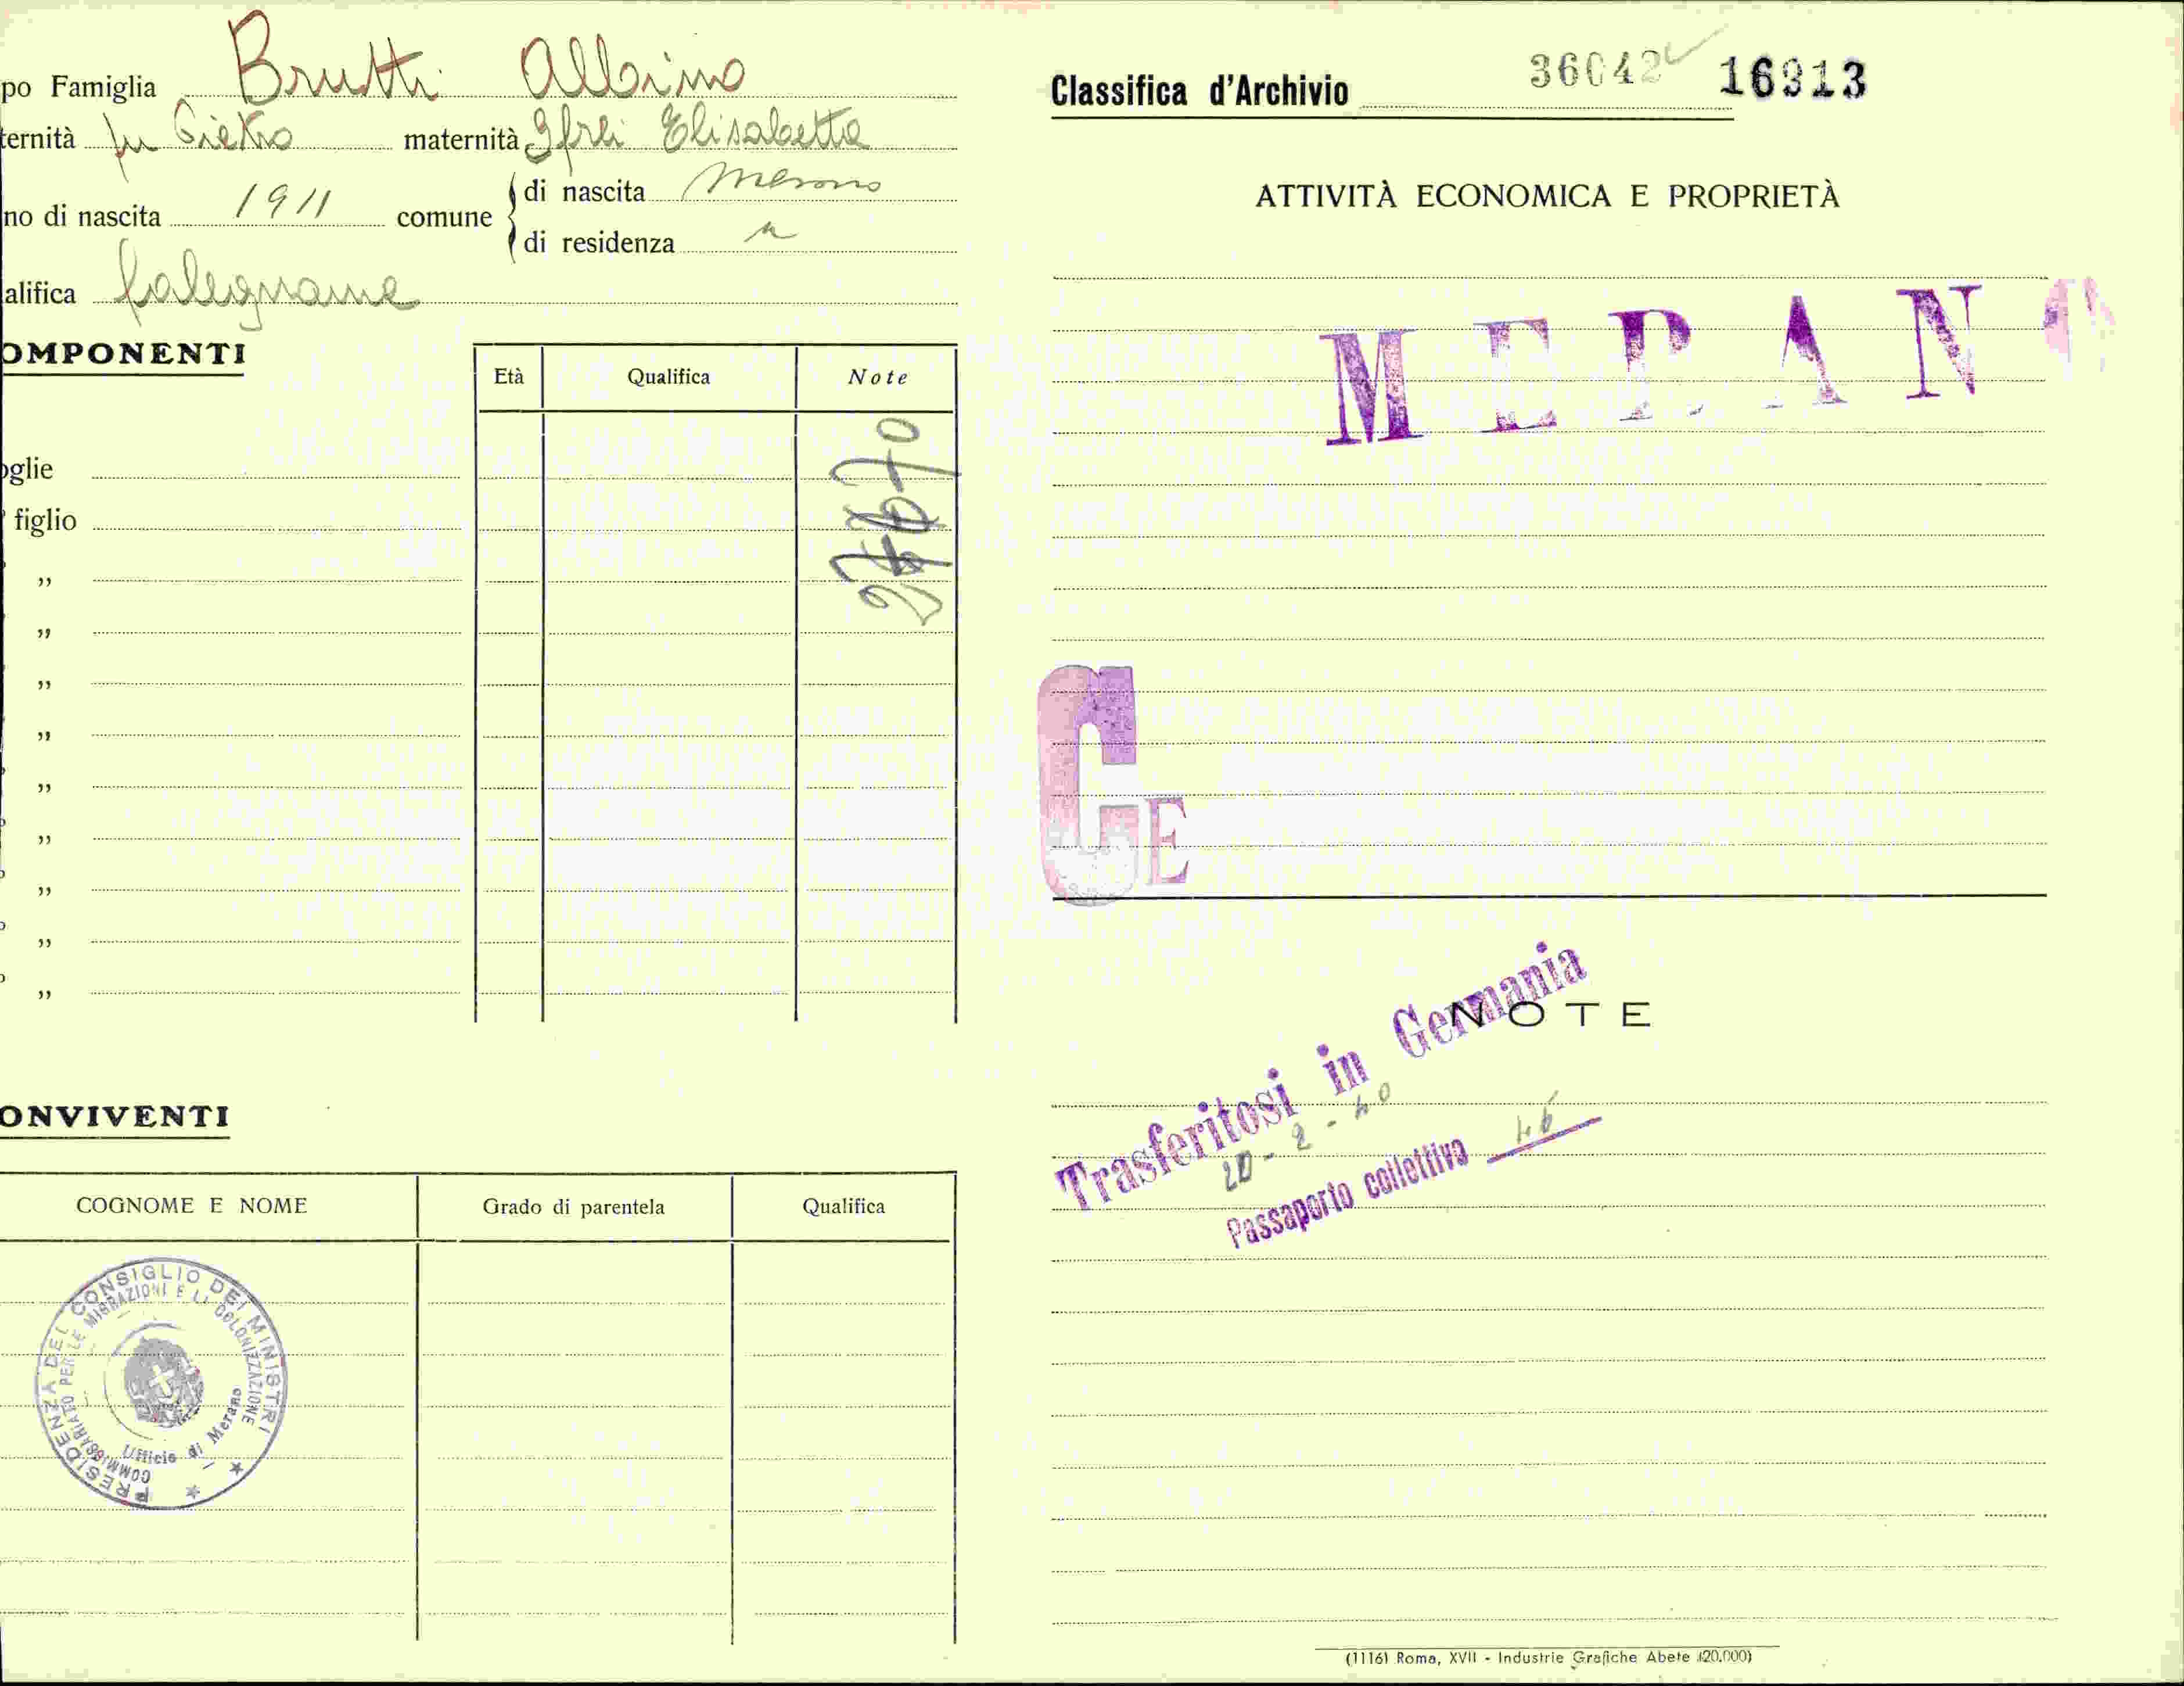 po Famiglia Brutti Albino
ternità fu Pietro maternità Elisabetta
no di nascita 1911 comune di nascita Merano
di residenza "
alifica falegname
OMPONENTI
Età Qualifica Note
oglie
figlio
"
"
"
"
"
"
"
"
"
ONVIVENTI
COGNOME E NOME Grado di parentela Qualifica
PRESIDENZA DEL CONSIGLIO DEI MINISTRI
COMMISSARIATO PER LE MIGRAZIONI E LA COLONIZZAZIONE
Ufficio di Merano
Classifica d'Archivio 36042 16913
ATTIVITÀ ECONOMICA E PROPRIETÀ
MERANO
G
E
NOTE
Trasferitosi in Germania
20-2-40
Passaporto collettivo 46
(1116) Roma, XVII - Industrie Grafiche Abete (20.000)